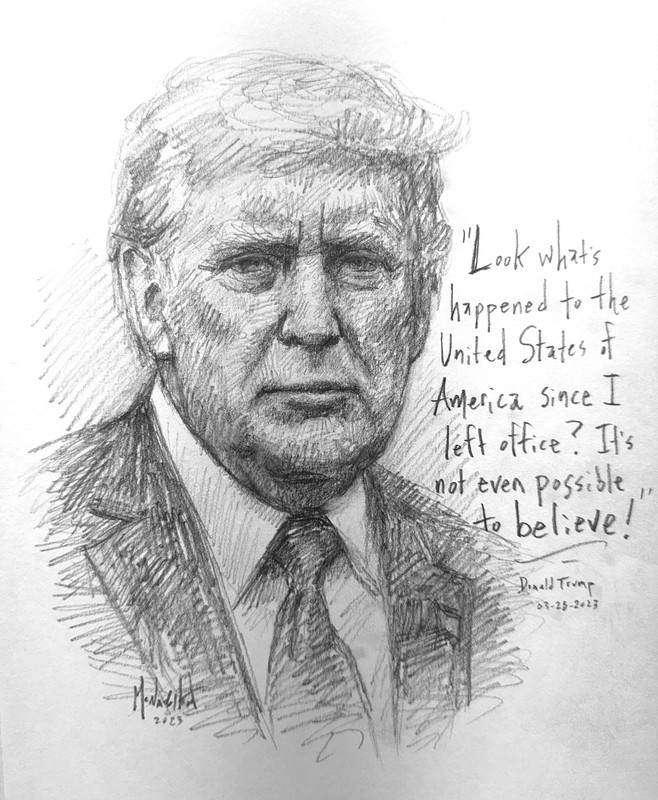 "Look what's
happened to the
United States of
America since I
left office? It's
not even possible
to believe!"
Donald Trump
03-28-2023
McNaughton
2023